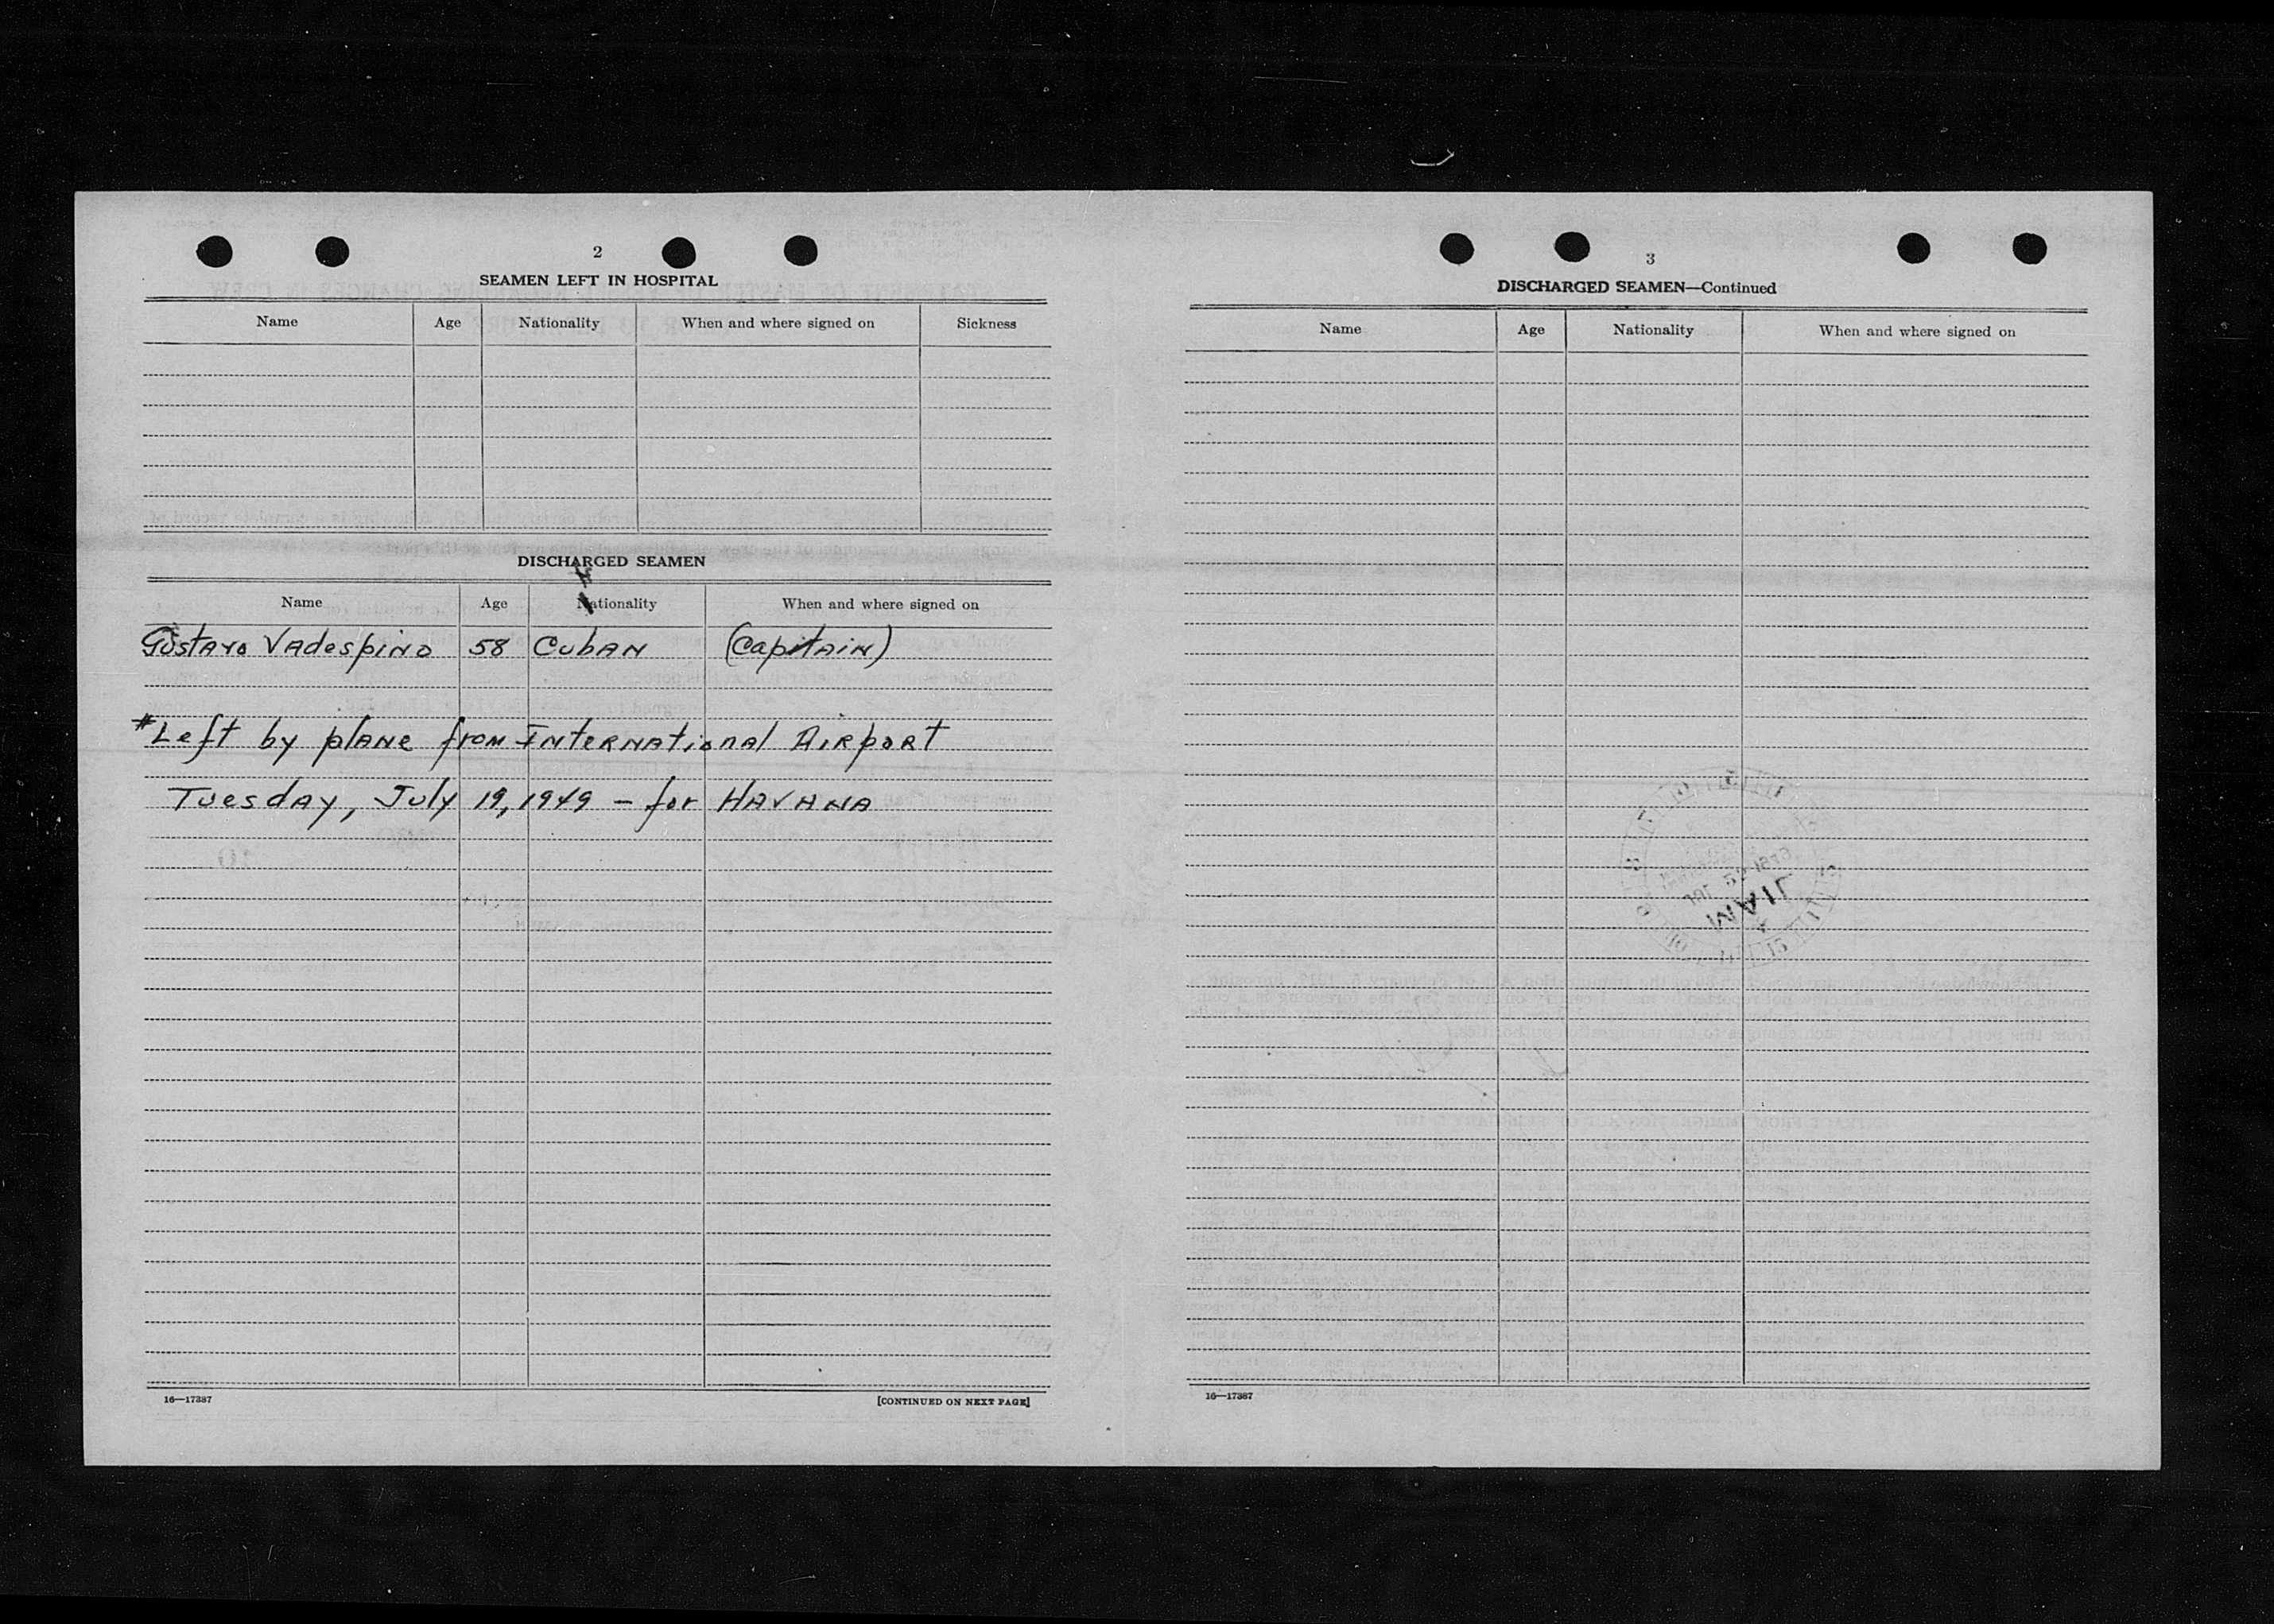 2
SEAMEN LEFT IN HOSPITAL
Name Age Nationality When and where signed on Sickness
DISCHARGED SEAMEN
Name Age Nationality When and where signed on
Gustavo Vadespino 58 Cuban (Capitain)
*Left by plane from International Airport
Tuesday, July 19, 1949 - for HAVANA
16—17387 [CONTINUED ON NEXT PAGE]
3
DISCHARGED SEAMEN—Continued
Name Age Nationality When and where signed on
16—17387